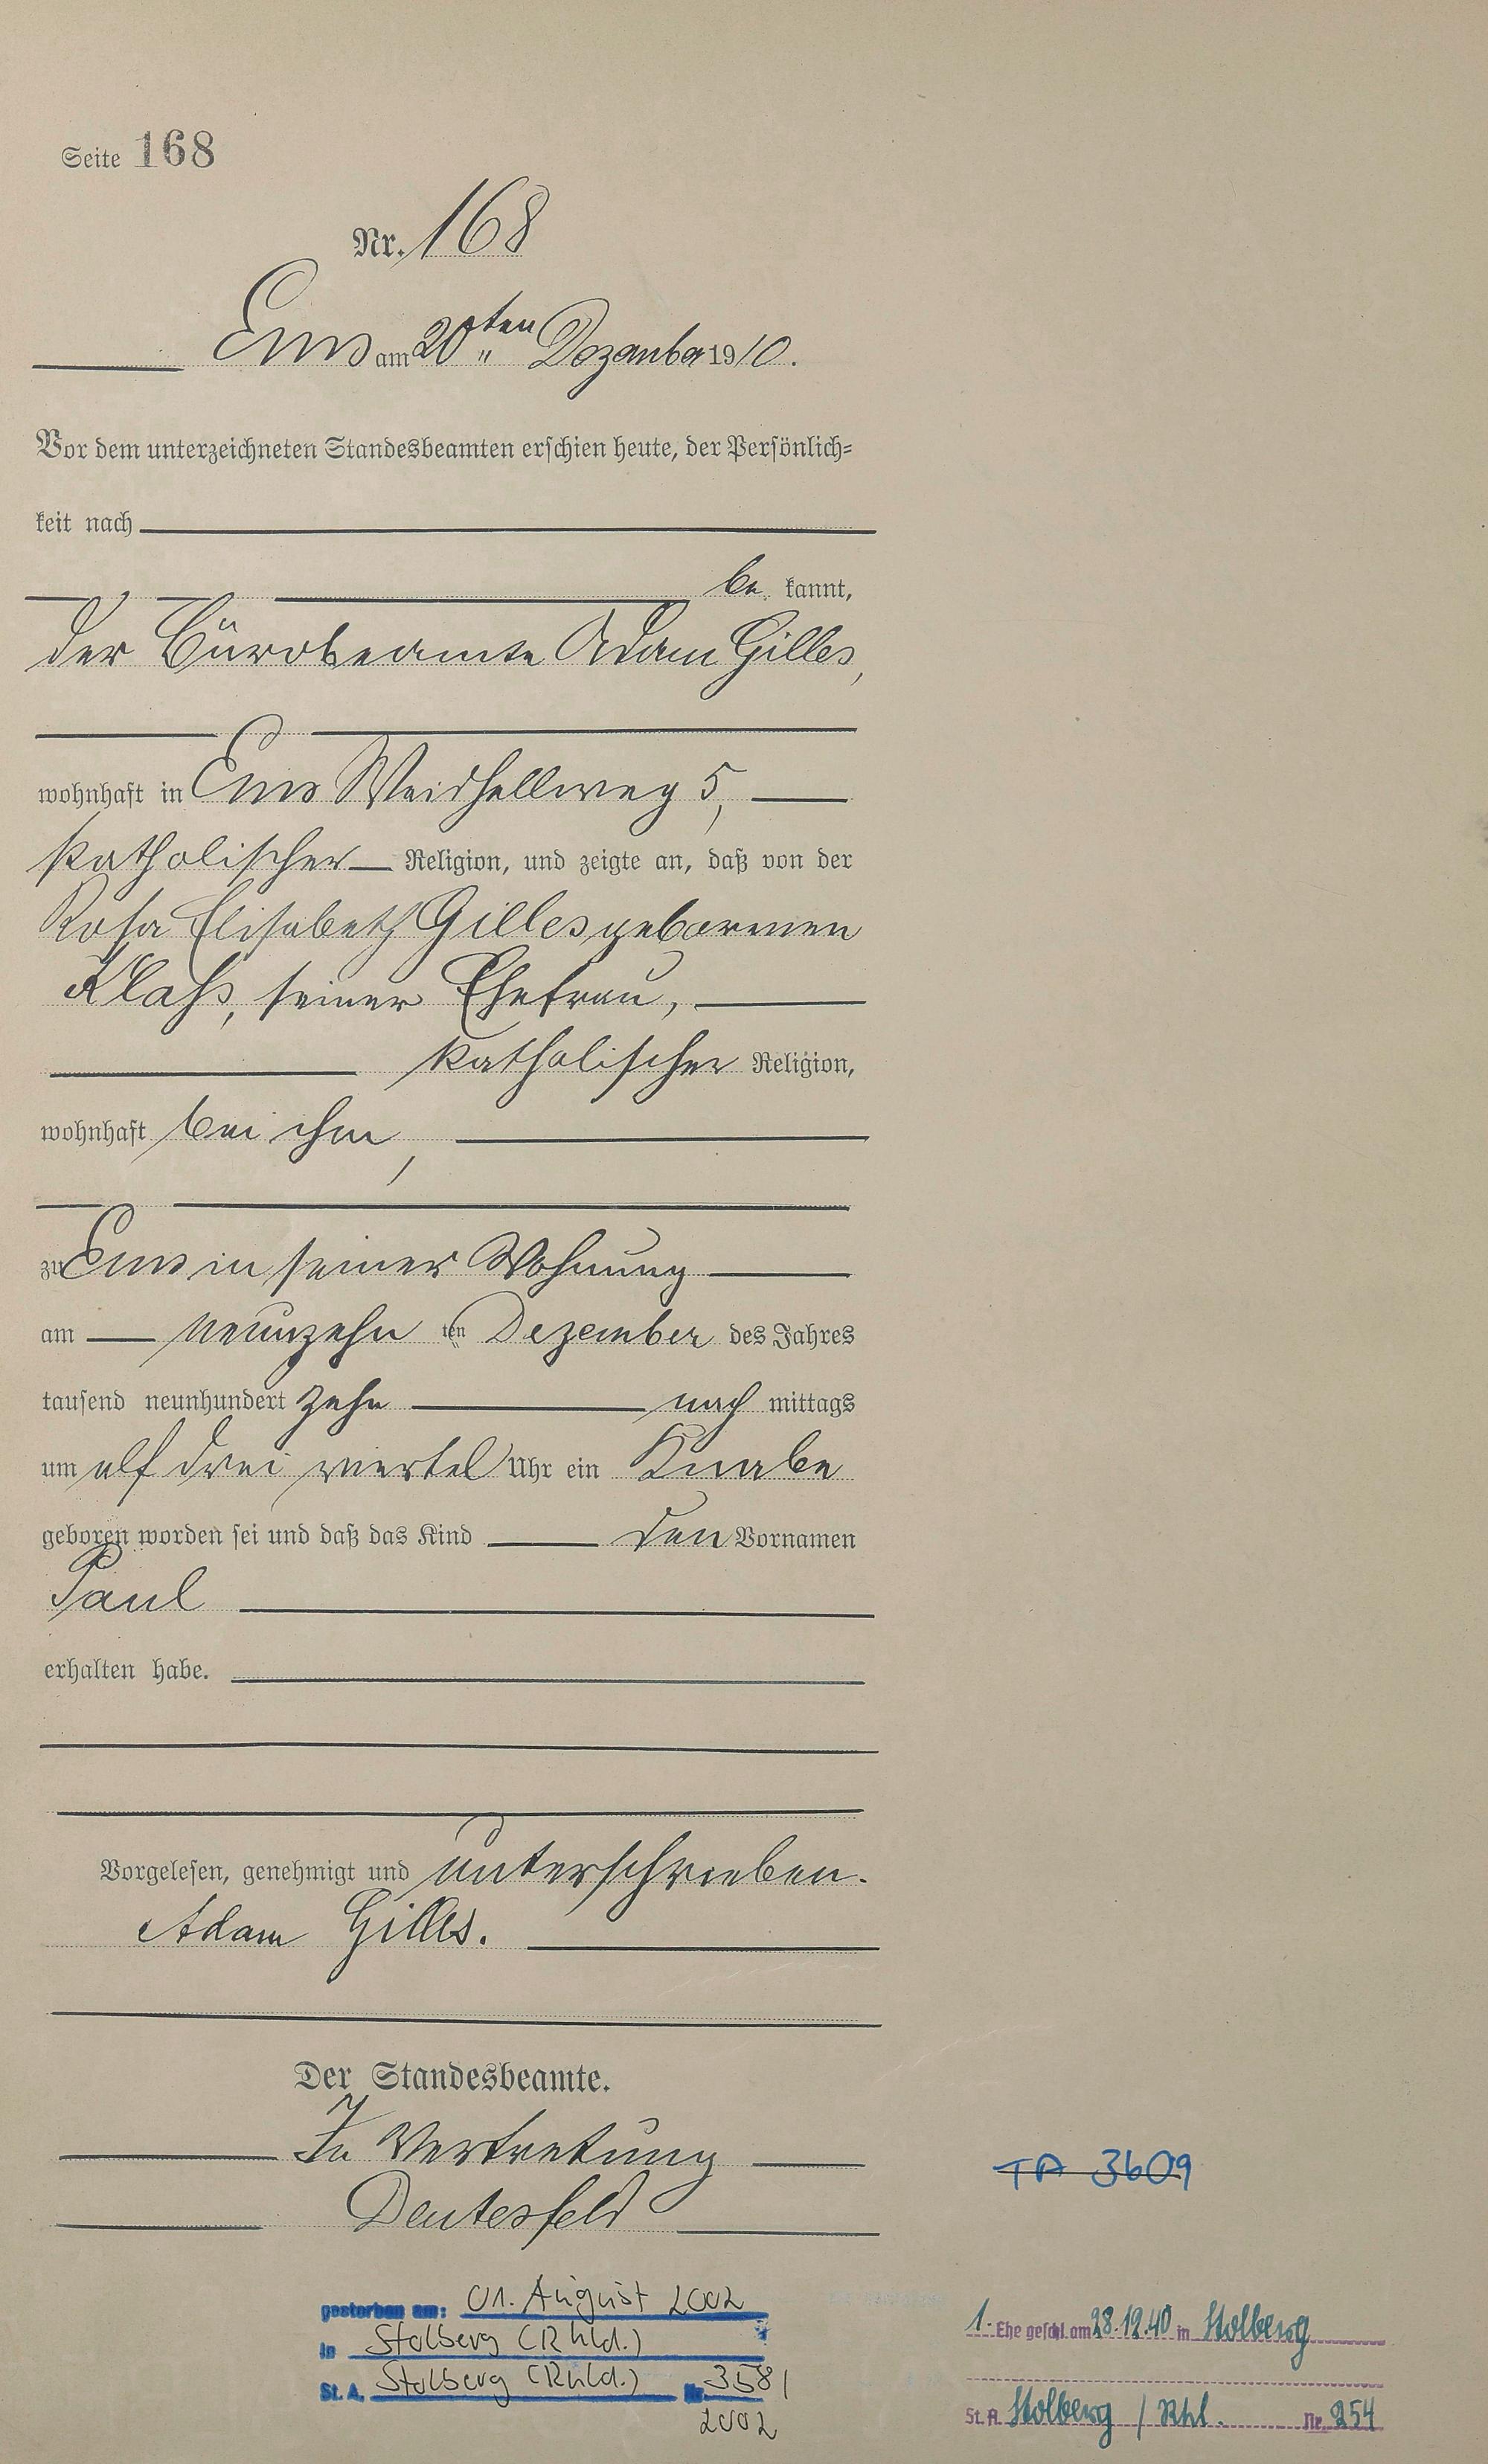 Seite 168
Nr. 168
Ems am 20ten Dezember 1910.
Vor dem unterzeichneten Standesbeamten erschien heute, der Persönlich-
keit nach
be kannt,
der Bürobeamte Adam Gilles,
wohnhaft in Ems Weidhellweg 5,
katholischer Religion, und zeigte an, daß von der
Rosa Elisabeth Gilles geborenen
Klaß, seiner Ehefrau,
katholischer Religion,
wohnhaft bei ihm,
zu Ems in seiner Wohnung
am neunzehn ten Dezember des Jahres
tausend neunhundert zehn nach mittags
um elf drei viertel Uhr ein Knabe
geboren worden sei und daß das Kind den Vornamen
Paul
erhalten habe.
Vorgelesen, genehmigt und unterschrieben.
Adam Gilles.
Der Standesbeamte.
In Vertretung
Deutesfeld
TA 3609
gestorben am: 01. August 2002
in Stolberg (Rhld.)
St. A. Stolberg (Rhld.) Nr. 358/
2002
1. Ehe geschl. am 28.12.40 in Stolberg
St. A. Stolberg / Rhl. Nr. 254